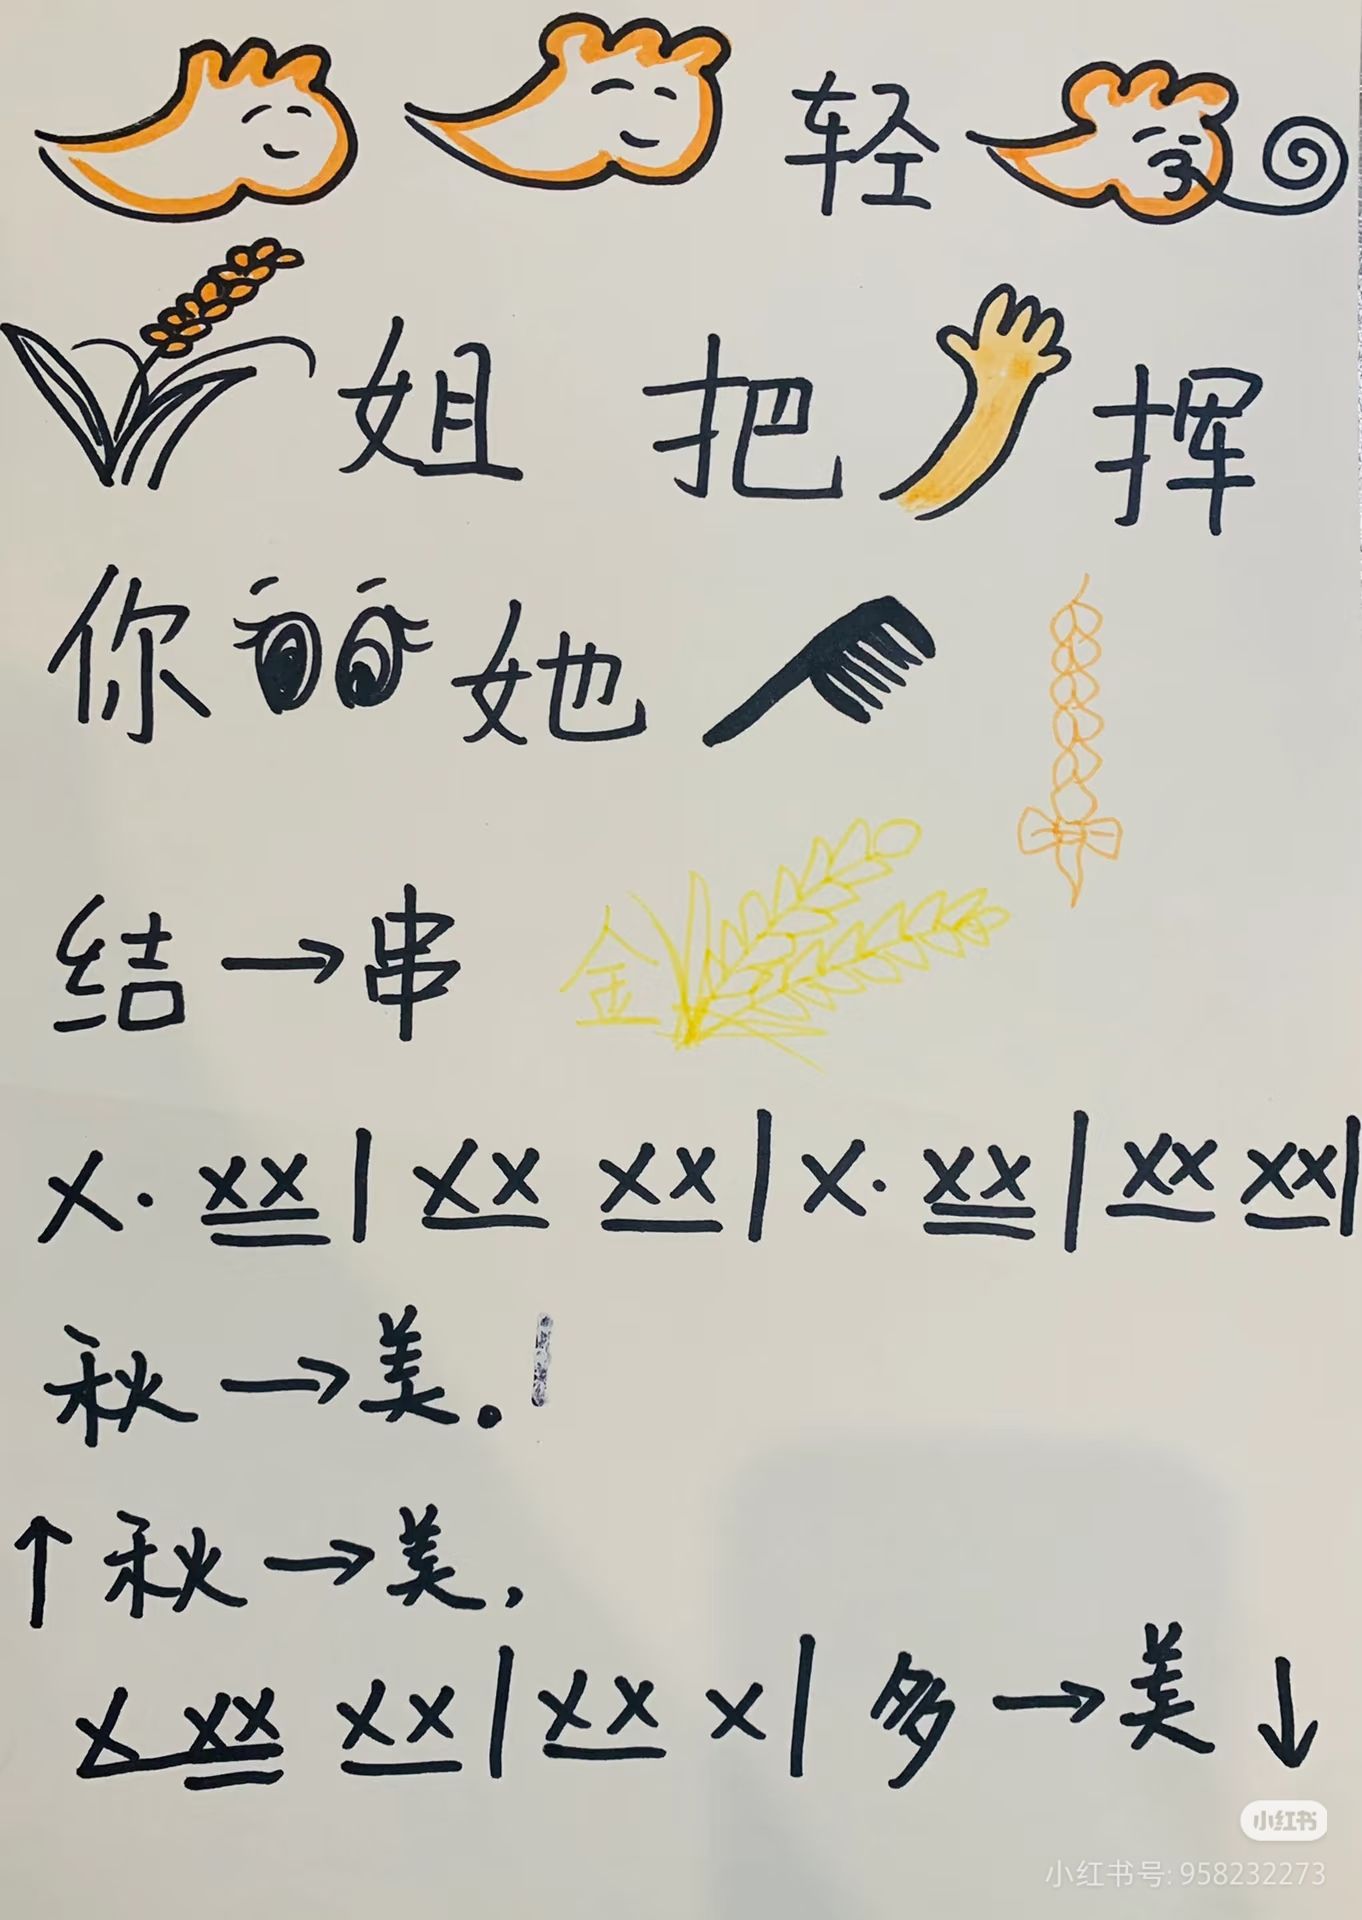 轻
姐 把 挥
你 她
结→串 金
X· XX | XX XX | X· XX | XX XX |
秋→美。
↑秋→美,
X XX XX | XX X | 多→美↓
小红书
小红书号: 958232273